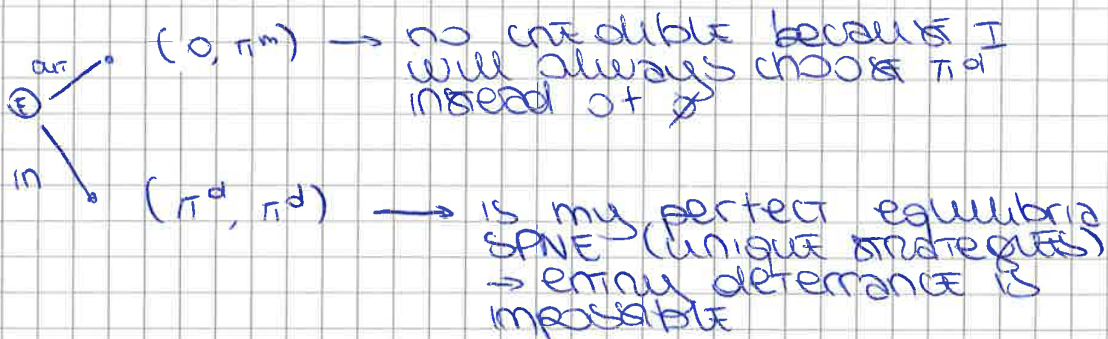 out (0, π^m) → no credible because I
will always choose π^d
instead of ∅
E
in (π^d, π^d) → is my perfect equilibria
SPNE (unique strategies)
→ entry deterrance is
impossible